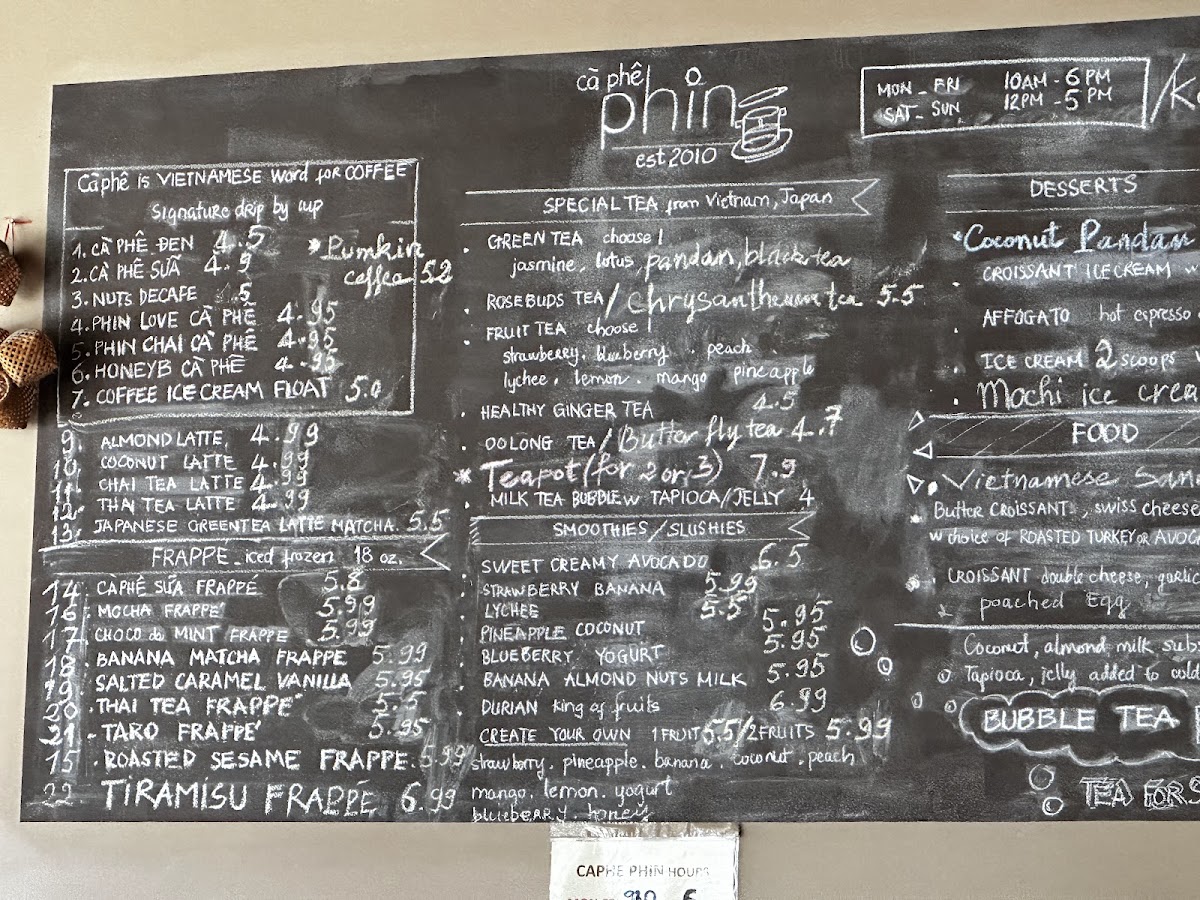 cà phê
phin
est 2010
MON - FRI 10AM - 6 PM
SAT - SUN 12PM - 5 PM
Càphê is VIETNAMESE Word for COFFEE
Signature drip by cup
1. CÀ PHÊ ĐEN 4.5
2. CÀ PHÊ SỮA 4.9
3. NUTS DECAFE .5
4. PHIN LOVE CÀ PHÊ 4.95
5. PHIN CHAI CÀ PHÊ 4.95
6. HONEYB CÀ PHÊ 4.95
7. COFFEE ICE CREAM FLOAT 5.0
*Pumkin
coffea 5.2
9. ALMOND LATTE, 4.99
10. COCONUT LATTE 4.99
11. CHAI TEA LATTE 4.99
12. THAI TEA LATTE 4.99
13. JAPANESE GREENTEA LATTE MATCHA. 5.5
FRAPPE - iced frozen 18 oz.
14. CÀPHÊ SỮA FRAPPÉ 5.8
16. MOCHA FRAPPE' 5.99
17. CHOCO do MINT FRAPPE 5.99
18. BANANA MATCHA FRAPPE 5.99
19. SALTED CARAMEL VANILLA 5.95
20. THAI TEA FRAPPE' 5.5
21 - TARO FRAPPE' 5.95
15 . ROASTED SESAME FRAPPE. 5.99
22 TIRAMISU FRAPPÉ 6.99
SPECIAL TEA from Vietnam, Japan
. GREEN TEA choose!
jasmine, lotus, pandan, black tea
. ROSEBUDS TEA / Chrysanthemum tea 5.5
. FRUIT TEA choose!
strawberry, blueberry . peach .
lychee, lemon. mango pineapple
. HEALTHY GINGER TEA 4.5
. OOLONG TEA / Butter fly tea 4.7
* Teapot (for 2 or 3) 7.9
. MILK TEA BUBBLE w TAPIOCA/JELLY 4
SMOOTHIES / SLUSHIES
SWEET CREAMY AVOCADO 6.5
STRAWBERRY BANANA 5.99
LYCHEE 5.5
PINEAPPLE COCONUT 5.95
BLUEBERRY YOGURT 5.95
BANANA ALMOND NUTS MILK 5.95
DURIAN king of fruits 6.99
CREATE YOUR OWN 1 FRUIT 5.5/2 FRUITS 5.99
strawberry. pineapple. banana. coconut. peach
mango. lemon. yogurt
blueberry. honey
DESSERTS
*Coconut Pandan
CROISSANT ICE CREAM w
. AFFOGATO hot espresso
. ICE CREAM 2 SCOOPS
. Mochi ice crea
FOOD
. Vietnamese San
* Butter CROISSANT, swiss cheese
w choice of ROASTED TURKEY OR AVOCA
* . CROISSANT double cheese, garlic
poached Egg
Coconut, almond milk subs
Tapioca, jelly added to cold
BUBBLE TEA
TEA FOR S
CAPHE PHIN HOURS